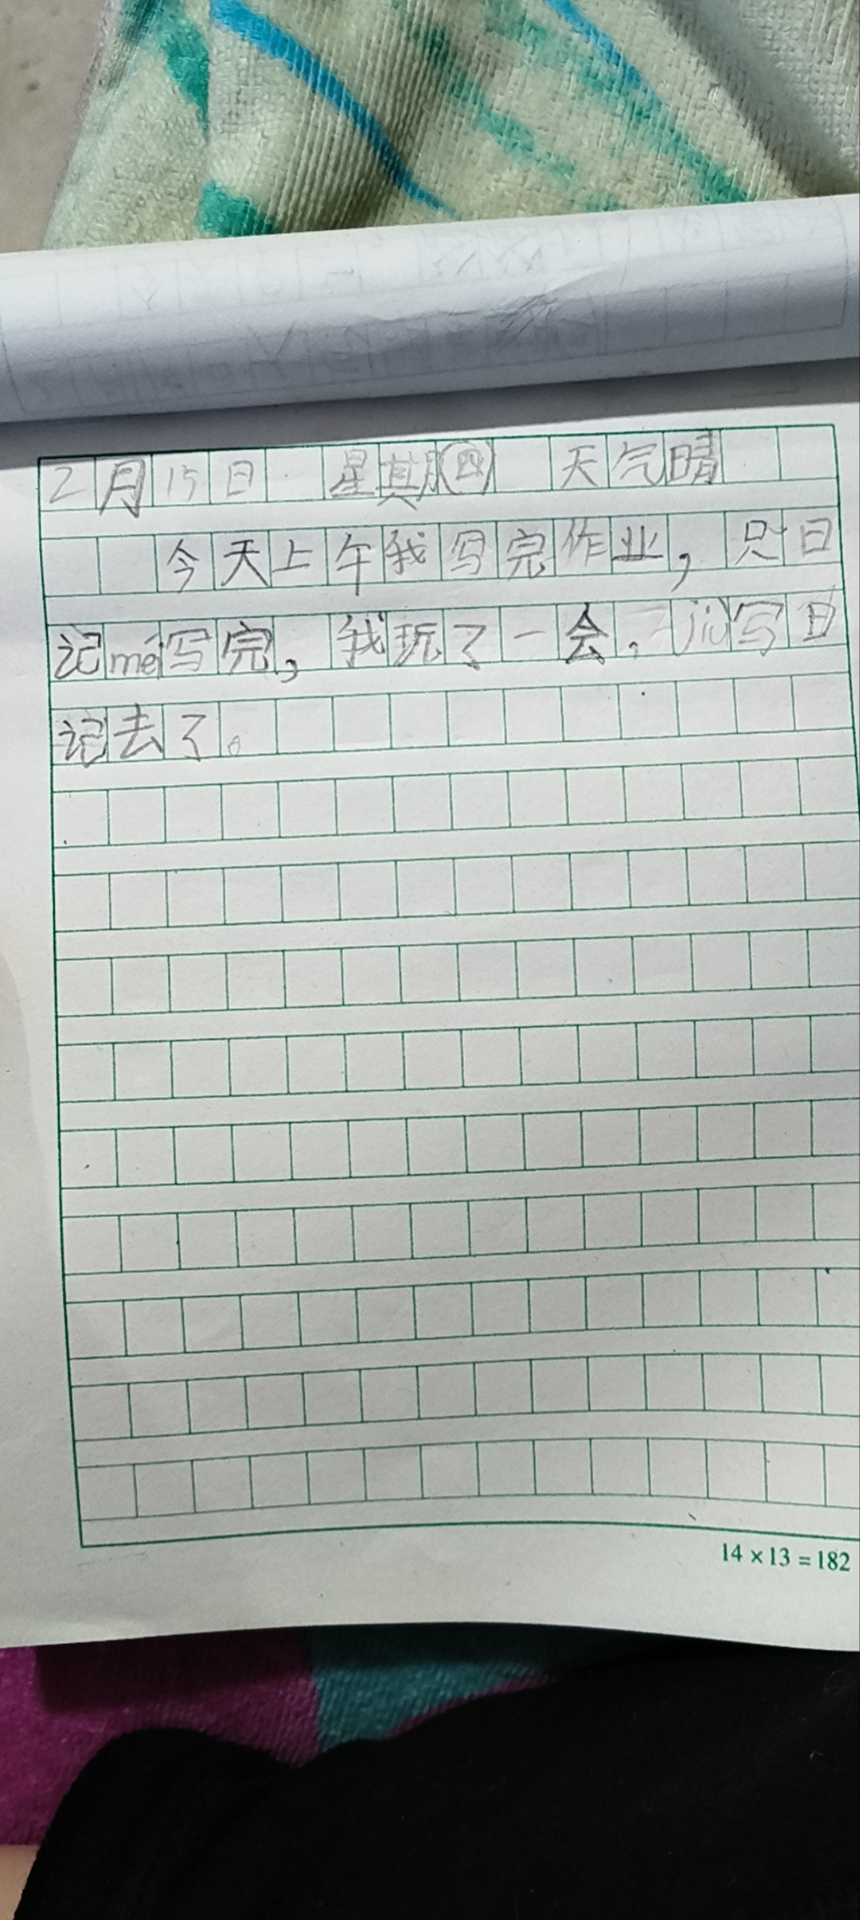 2月15日 星期四 天气晴
今天上午我写完作业，只日
记méi写完，我玩了一会，jiù写日
记去了。
14×13=182